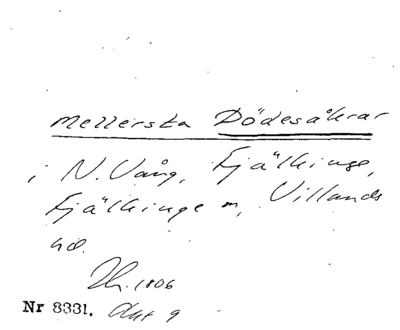 Mellersta Dödesåkrar
i N. Vång, Fjälkinge,
Fjälkinge sn, Villands
hd.
Sk. 1806
Nr 8331. Akt 9